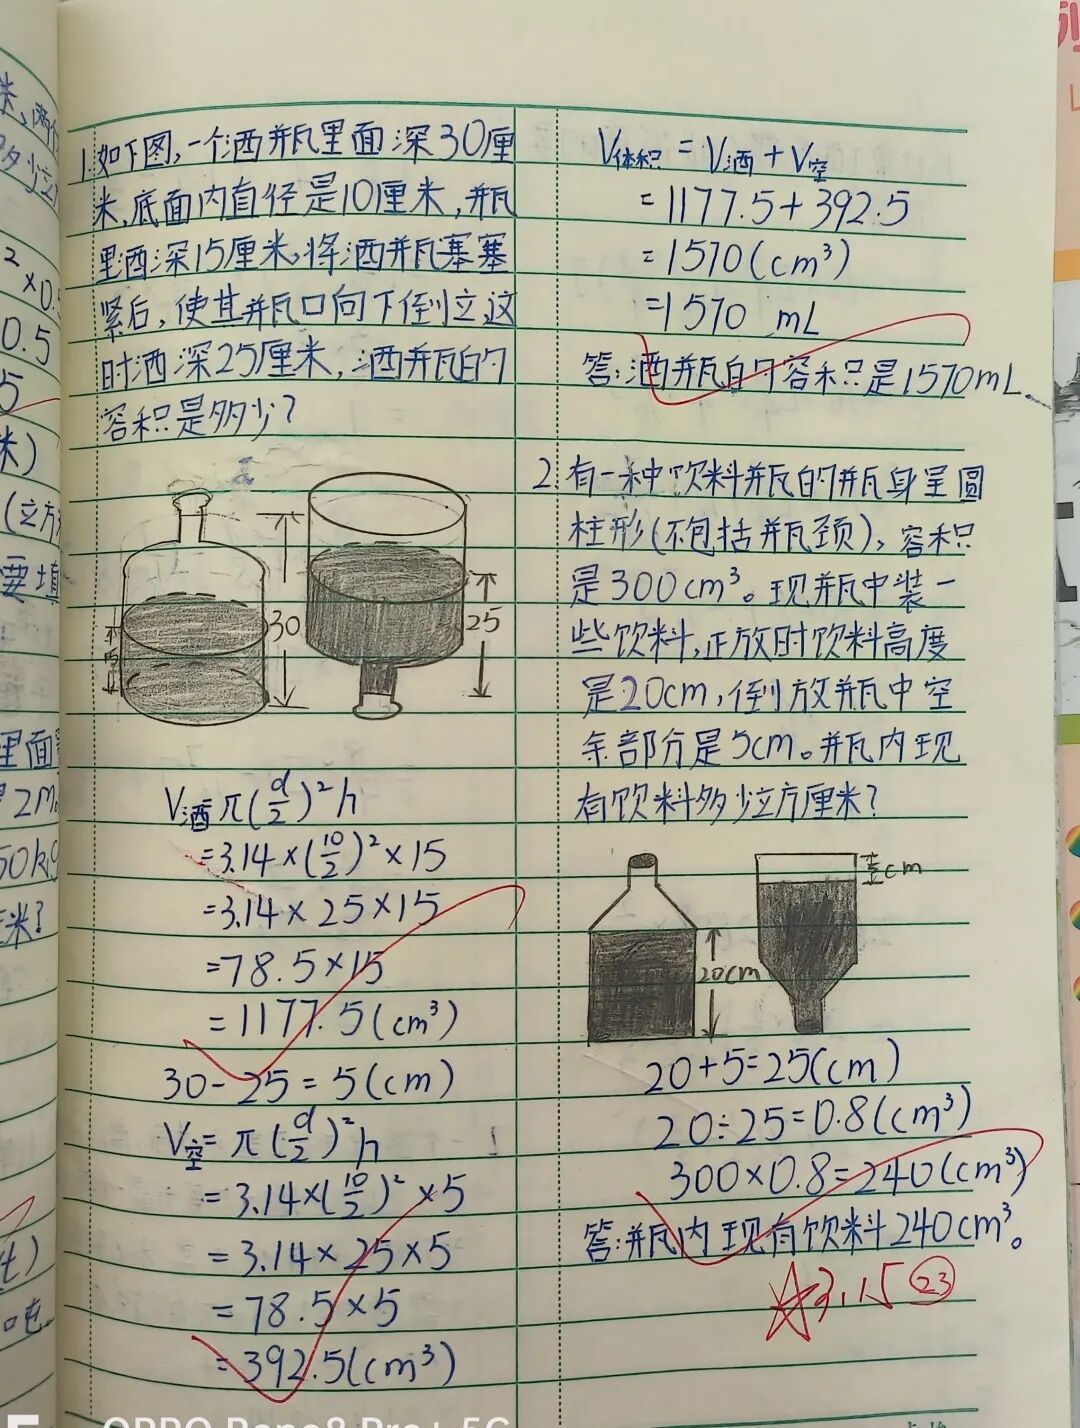 1.如下图,一个酒瓶里面深30厘
米,底面内直径是10厘米,瓶
里酒深15厘米,将酒瓶塞塞
紧后,使其瓶口向下倒立这
时酒深25厘米,酒瓶的
容积是多少?
30
15
25
V酒=π(d/2)²h
=3.14×(10/2)²×15
=3.14×25×15
=78.5×15
=1177.5(cm³)
30-25=5(cm)
V空=π(d/2)²h
=3.14×(10/2)²×5
=3.14×25×5
=78.5×5
=392.5(cm³)
V体积=V酒+V空
=1177.5+392.5
=1570(cm³)
=1570 mL
答:酒瓶的容积是1570mL.
2.有一种饮料瓶的瓶身呈圆
柱形(不包括瓶颈),容积
是300cm³。现瓶中装一
些饮料,正放时饮料高度
是20cm,倒放瓶中空
余部分是5cm。瓶内现
有饮料多少立方厘米?
cm
20cm
20+5=25(cm)
20÷25=0.8(cm³)
300×0.8=240(cm³)
答:瓶内现有饮料240cm³。
3.15 23
米,两个
多少立
²×0.5
0.5
5
米)
(立方
要填
里面
2m
50kg
米?
吨